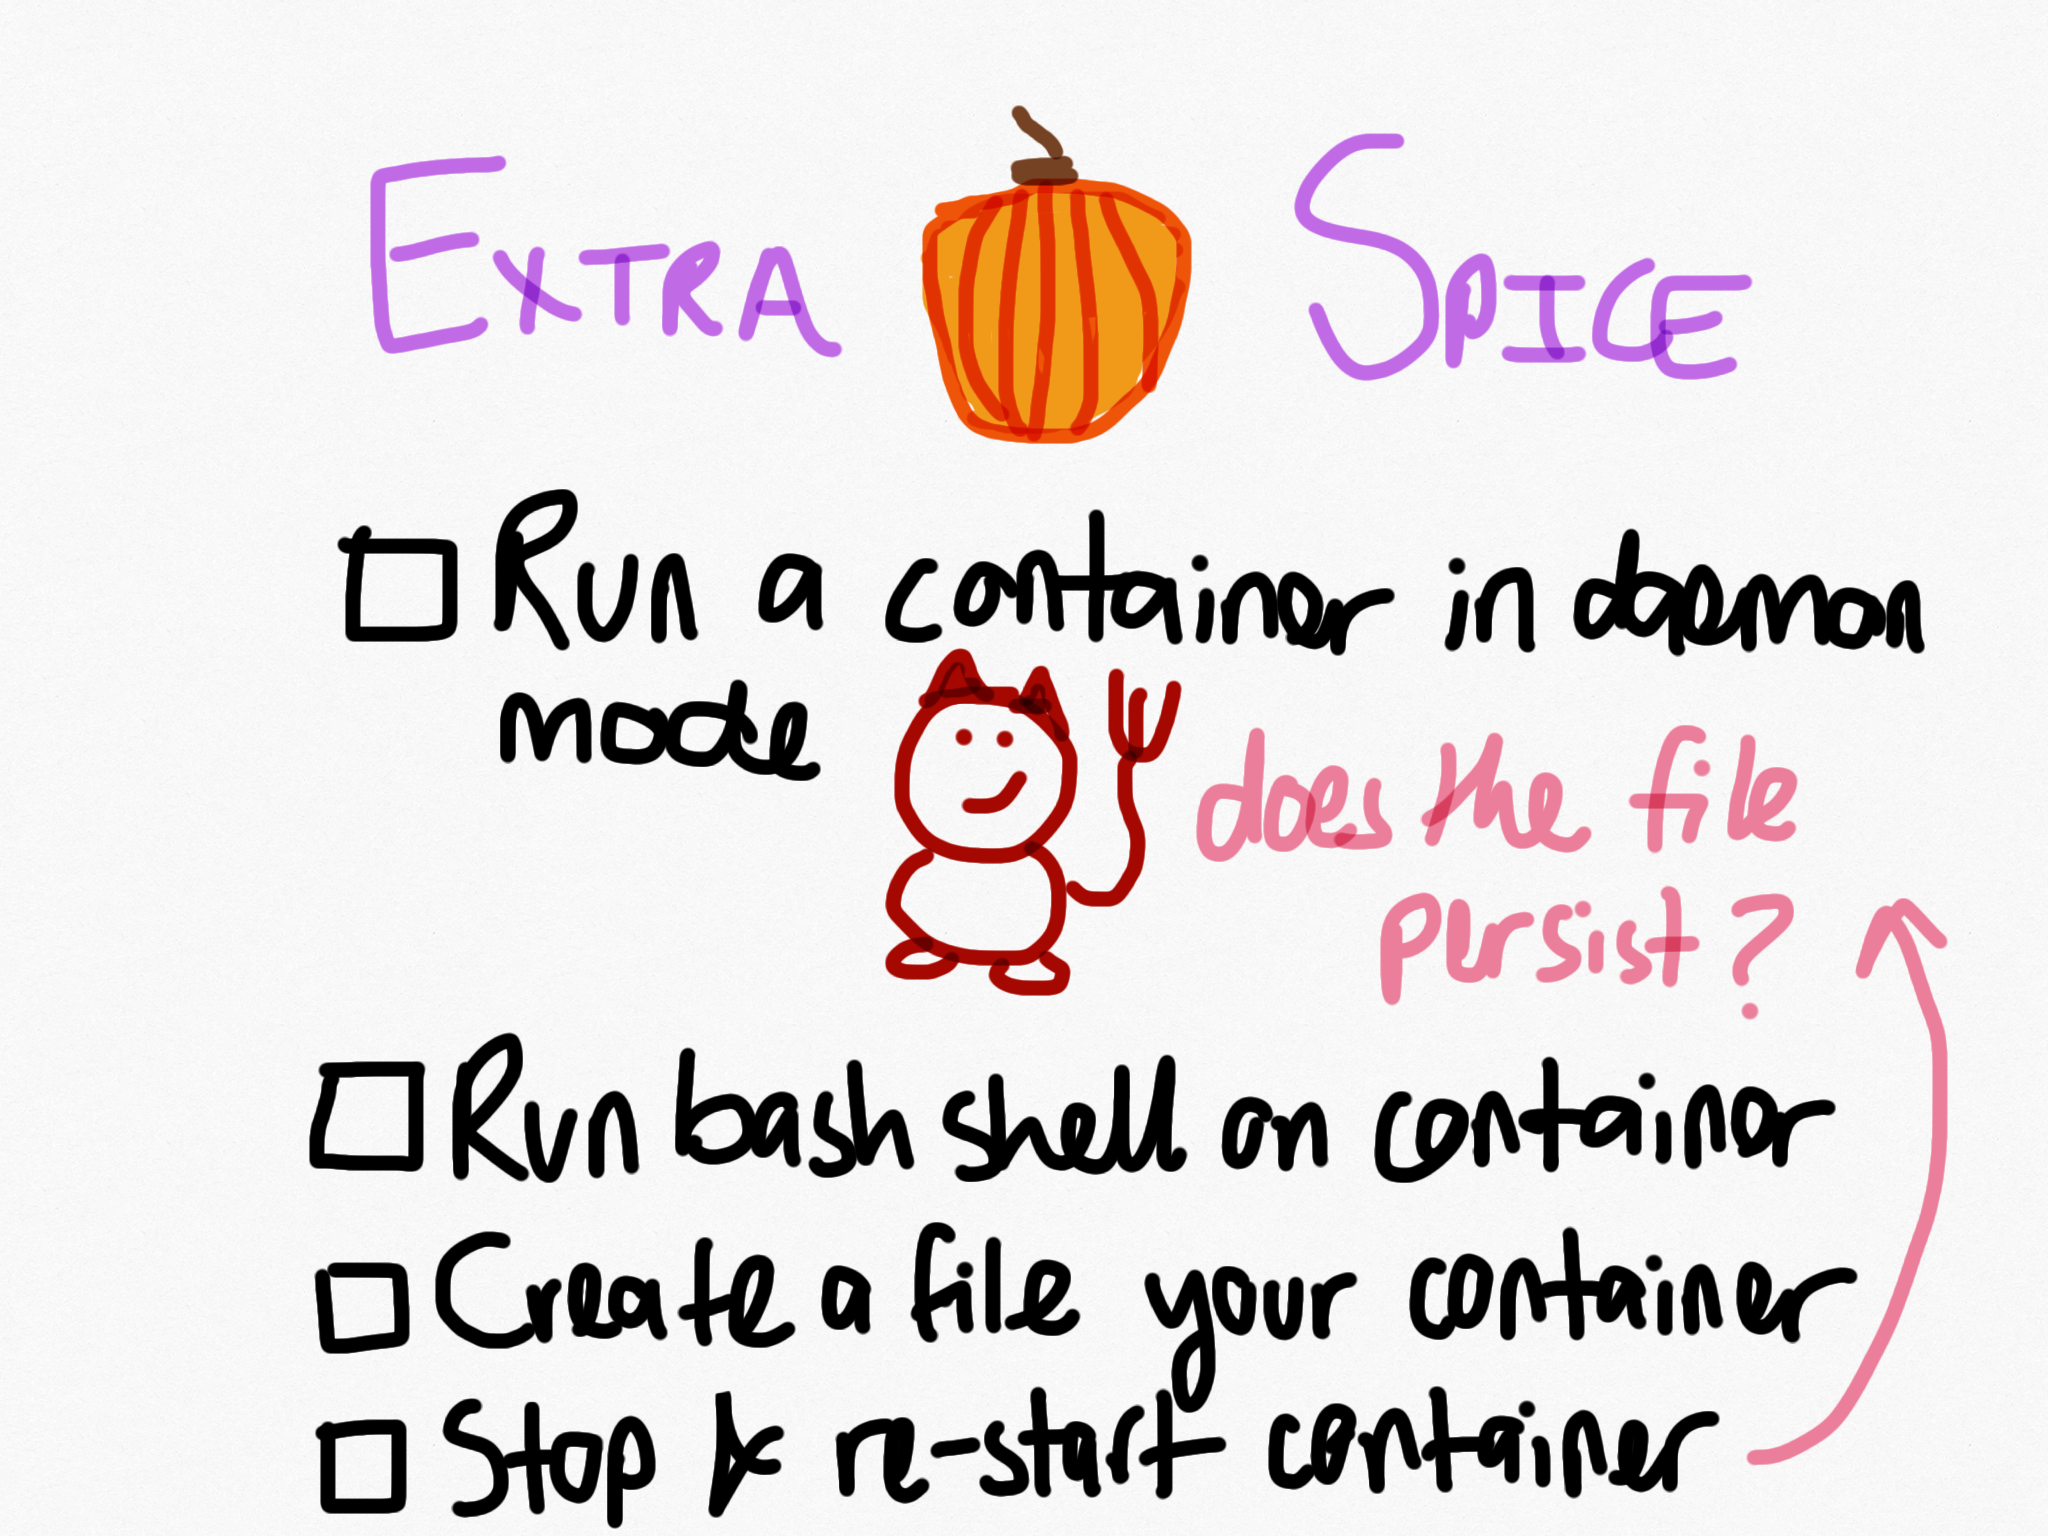 EXTRA SPICE
Run a container in daemon
mode
does the file
persist?
Run bash shell on container
Create a file your container
Stop & re-start container